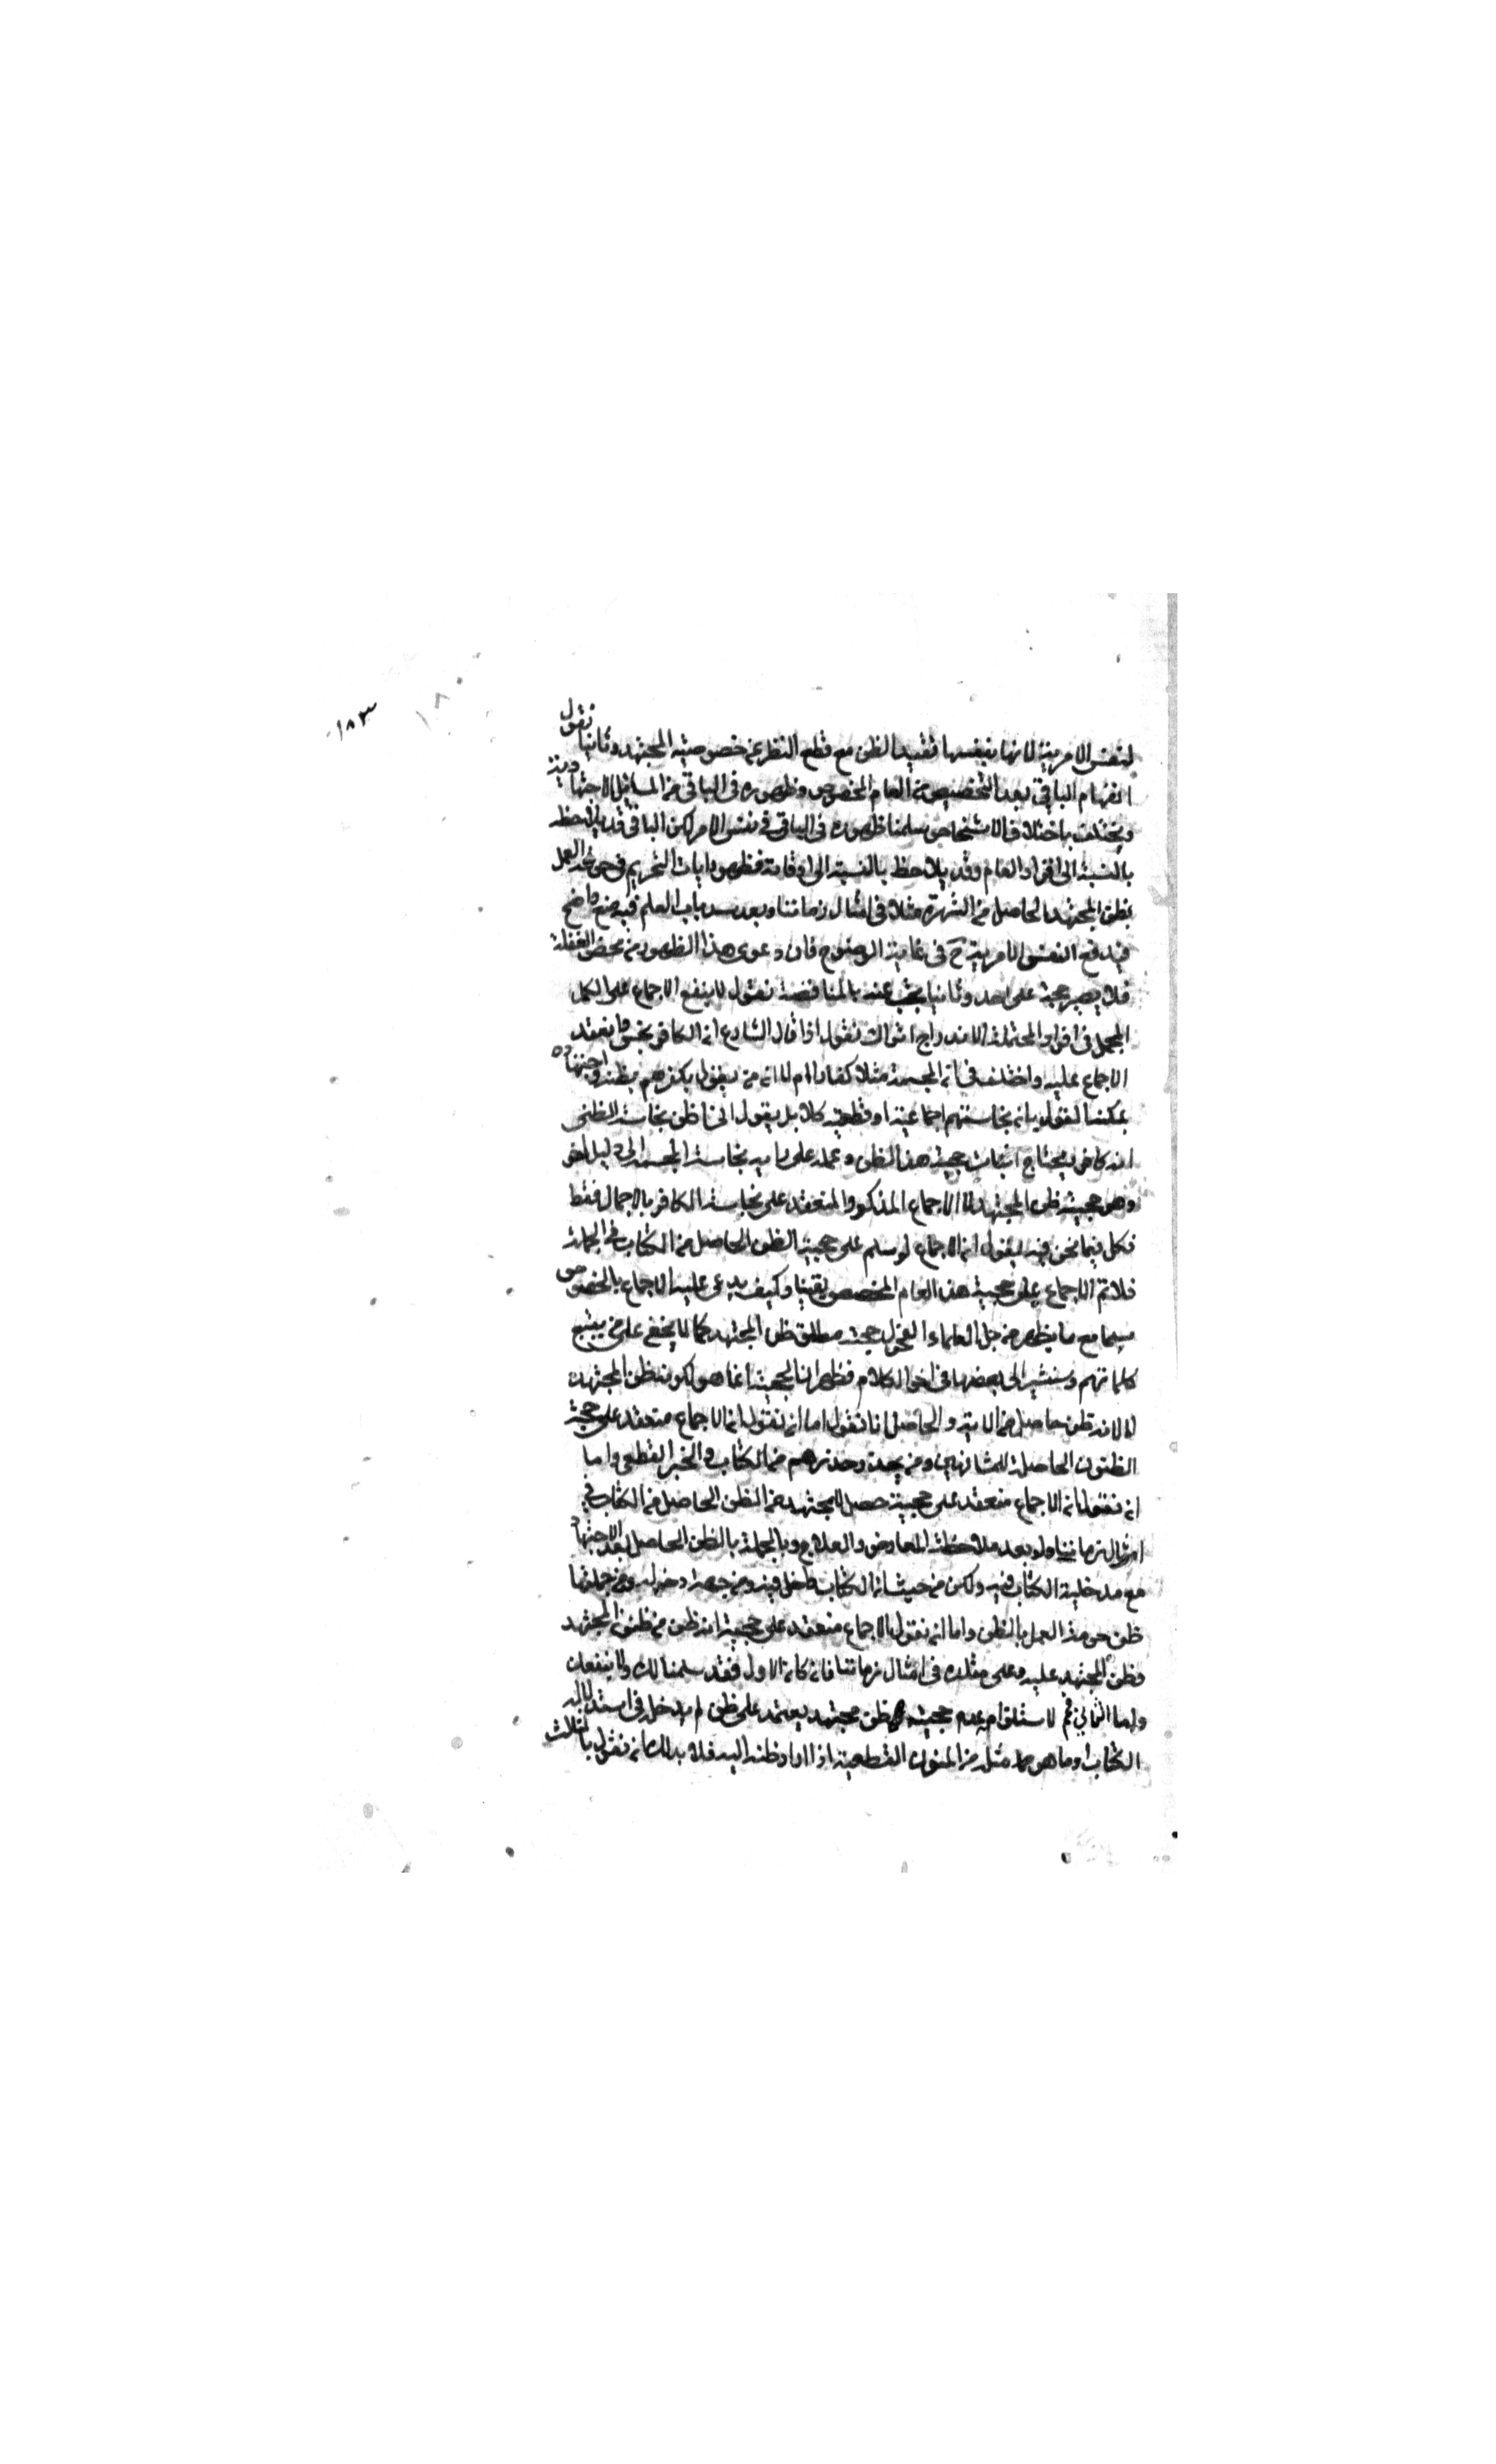 ١٨٣
لنفس الامرية لانها بنفسها تفيد الظن مع قطع النظر عن خصوصية المجتهد وثانيا نقول
انفهام الباقي بعد التخصيص من العام المخصوص وظهوره فى الباقي من المسائل الاجتهادية
ويختلف باختلاف الاشخاص سلمنا ظهوره فى الباقي في نفس الامر لكن الباقي قد يلاحظ
بالنسبة الى افراد العام وقد يلاحظ بالنسبة الى اوقاته فظهور ايات التحريم في حرمة العمل
بظن المجتهد الحاصل من الشهرة مثلا فى امثال زماننا وبعد سد باب العلم فيه منع واضح
فيدفع النفس الامرية ح فى غاية الوضوح فان دعوى هذا الظهور من محض الغفلة
فلا يصير حجة على احد وثانيا يجب عنه بالمناقضة نقول لا ينفع الاجماع على الكل
المجمل فى افراد المحتملة الاندراج اترى انك تقول اذا قال الشارع ان الكافر نجس وانعقد
الاجماع عليه واختلف في ان المجسمة مثلا كفار ام لا ان من يقول بكفرهم بظنه واجتهاده
يمكننا لقول بان نجاستهم اجماعية او قطعية كلا بل يقول انى اظن نجاسته لظني
انه كافر ويحتاج اثبات حجية هذا الظن وعمله على رايه بنجاسة المجسمة الى دليل اخر
وهو حجية ظن المجتهد لا الاجماع المذكور المنعقد على نجاسة الكافر بالاجمال فقط
فكل فيما نحن فيه يقول ان الاجماع لو سلم على حجية الظن الحاصل من الكتاب في الجملة
فلا تم الاجماع على حجية هذا العام المخصص يقينا وكيف يدعى عليه الاجماع بالخصوص
سيما مع ما يظهر من جل العلماء الفحول حجية مطلق ظن المجتهد كما لا يخفى على من يتتبع
كلماتهم وسنشير الى بعضها فى اخر الكلام فظهر ان الحجية انما هو لكونه ظن المجتهد
لا لانه ظن حاصل من الاية والحاصل انا نقول اما ان نقول ان الاجماع منعقد على حجية
الظنون الحاصلة للمشافهين ومن يحذو حذوهم من الكتاب والخبر القطعي واما
ان نقول ان الاجماع منعقد على حجية حصل للمجتهد من الظن الحاصل من الكتاب في
امثال زماننا ولو بعد ملاحظة المعارض والعلاج وبالجملة بالظن الحاصل بعد الاجتهاد
مع مدخلية الكتاب فيه ولكن من حيث ان الكتاب داخل فيه ومن جهة دخوله ومن جملتها
ظن حرمة العمل بالظن واما ان نقول بالاجماع منعقد على حجية انه ظن من ظنون المجتهد
وظن المجتهد عليه وعلى مقلده فى امثال زماننا فان كان الاول فقد سلمنا لك ولا ينفعك
واما الثاني فم لاستلزام عدم حجية ظن مجتهد يعتمد على ظن لم يدخل فى استدلاله
الكتاب وما هو مثله من المتون القطعية اذا اداه ظنه اليه فلا بد لك ان نقول بالثالث